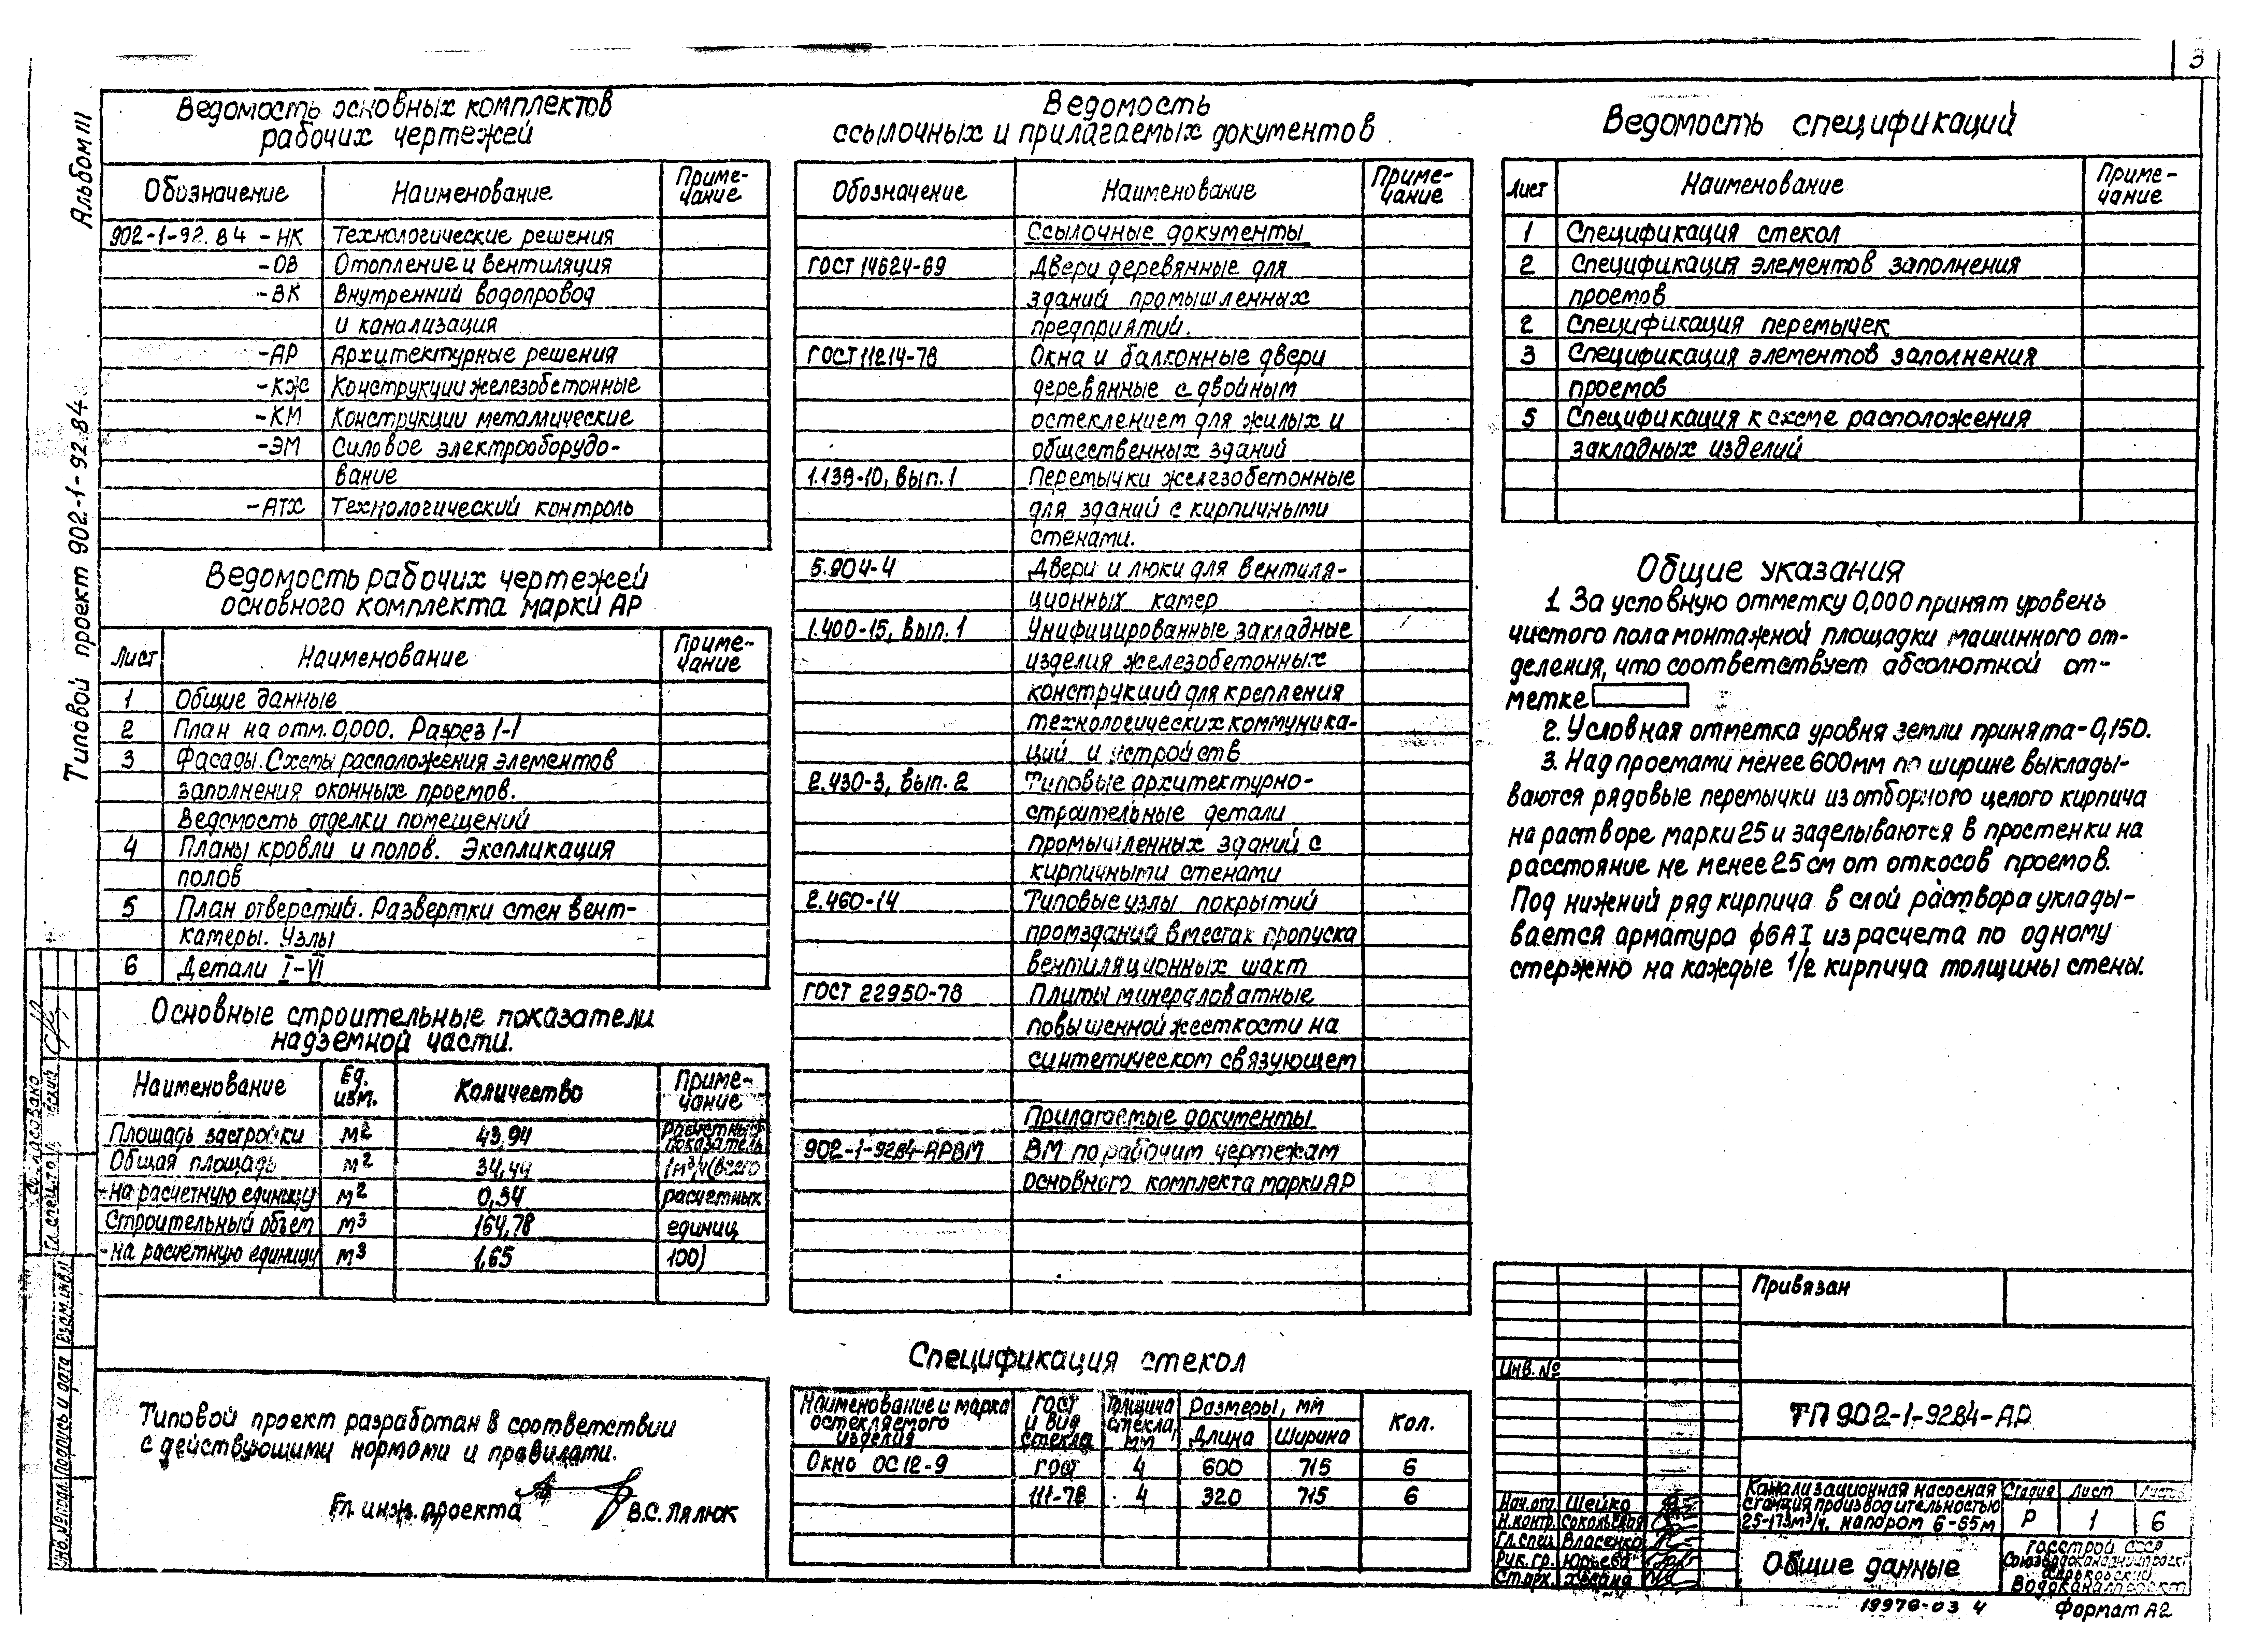 3
Альбом III
Типовой проект 902-1-92.84
Ведомость основных комплектов
рабочих чертежей
Обозначение Наименование Приме-
чание
902-1-92.84-НК Технологические решения
-ОВ Отопление и вентиляция
-ВК Внутренний водопровод
и канализация
-АР Архитектурные решения
-КЖ Конструкции железобетонные
-КМ Конструкции металлические
-ЭМ Силовое электрооборудо-
вание
-АТХ Технологический контроль
Ведомость рабочих чертежей
основного комплекта марки АР
Лист Наименование Приме-
чание
1 Общие данные
2 План на отм. 0,000. Разрез 1-1
3 Фасады. Схемы расположения элементов
заполнения оконных проемов.
Ведомость отделки помещений
4 Планы кровли и полов. Экспликация
полов
5 План отверстий. Развертки стен вент-
камеры. Узлы
6 Детали I-VI
Основные строительные показатели
надземной части.
Наименование Ед.
изм. Количество Приме-
чание
Площадь застройки м2 43,94 Расчетный
показатель
Общая площадь м2 34,44 1м3/ч (всего
-на расчетную единицу м2 0,34 расчетных
Строительный объем м3 164,78 единиц
-на расчетную единицу м3 1,65 100)
Типовой проект разработан в соответствии
с действующими нормами и правилами.
Гл. инж. проекта В.С. Лялюк
Ведомость
ссылочных и прилагаемых документов
Обозначение Наименование Приме-
чание
Ссылочные документы
ГОСТ 14624-69 Двери деревянные для
зданий промышленных
предприятий.
ГОСТ 11214-78 Окна и балконные двери
деревянные с двойным
остеклением для жилых и
общественных зданий
1.139-10, вып. 1 Перемычки железобетонные
для зданий с кирпичными
стенами.
5.904-4 Двери и люки для вентиля-
ционных камер
1.400-15, вып. 1 Унифицированные закладные
изделия железобетонных
конструкций для крепления
технологических коммуника-
ций и устройств
2.430-3, вып. 2 Типовые архитектурно-
строительные детали
промышленных зданий с
кирпичными стенами
2.460-14 Типовые узлы покрытий
промзданий в местах пропуска
вентиляционных шахт
ГОСТ 22950-78 Плиты минераловатные
повышенной жесткости на
синтетическом связующем
Прилагаемые документы
902-1-92.84-АРВМ ВМ по рабочим чертежам
основного комплекта марки АР
Спецификация стекол
Наименование и марка
остекляемого
изделия ГОСТ
и вид
стекла Толщина
стекла,
мм Размеры, мм
Длина Ширина Кол.
Окно ОС12-9 ГОСТ 4 600 715 6
111-78 4 320 715 6
Ведомость спецификаций
Лист Наименование Приме-
чание
1 Спецификация стекол
2 Спецификация элементов заполнения
проемов
2 Спецификация перемычек
3 Спецификация элементов заполнения
проемов
5 Спецификация к схеме расположения
закладных изделий
Общие указания
1. За условную отметку 0,000 принят уровень
чистого пола монтажной площадки машинного от-
деления, что соответствует абсолютной от-
метке
2. Условная отметка уровня земли принята -0,150.
3. Над проемами менее 600мм по ширине выклады-
ваются рядовые перемычки из отборного целого кирпича
на растворе марки 25 и заделываются в простенки на
расстояние не менее 25 см от откосов проемов.
Под нижний ряд кирпича в слой раствора уклады-
вается арматура ф6АI из расчета по одному
стержню на каждые 1/2 кирпича толщины стены.
Привязан
Инв. №
ТП 902-1-92.84-АР
Нач. отд. Шейко
Н. контр. Сокольская
Гл. спец. Власенко
Рук. гр. Юрьева
Ст. арх.
Канализационная насосная
станция производительностью
25-173м3/ч, напором 6-65м
Стадия Лист Листов
Р 1 6
Общие данные
Госстрой СССР
Союзводоканалниипроект
Харьковский
Водоканалпроект
19976-03 4
Формат А2
Согласовано
Гл. спец. т.о.
Взам. инв. №
Подпись и дата
Инв. № подл.